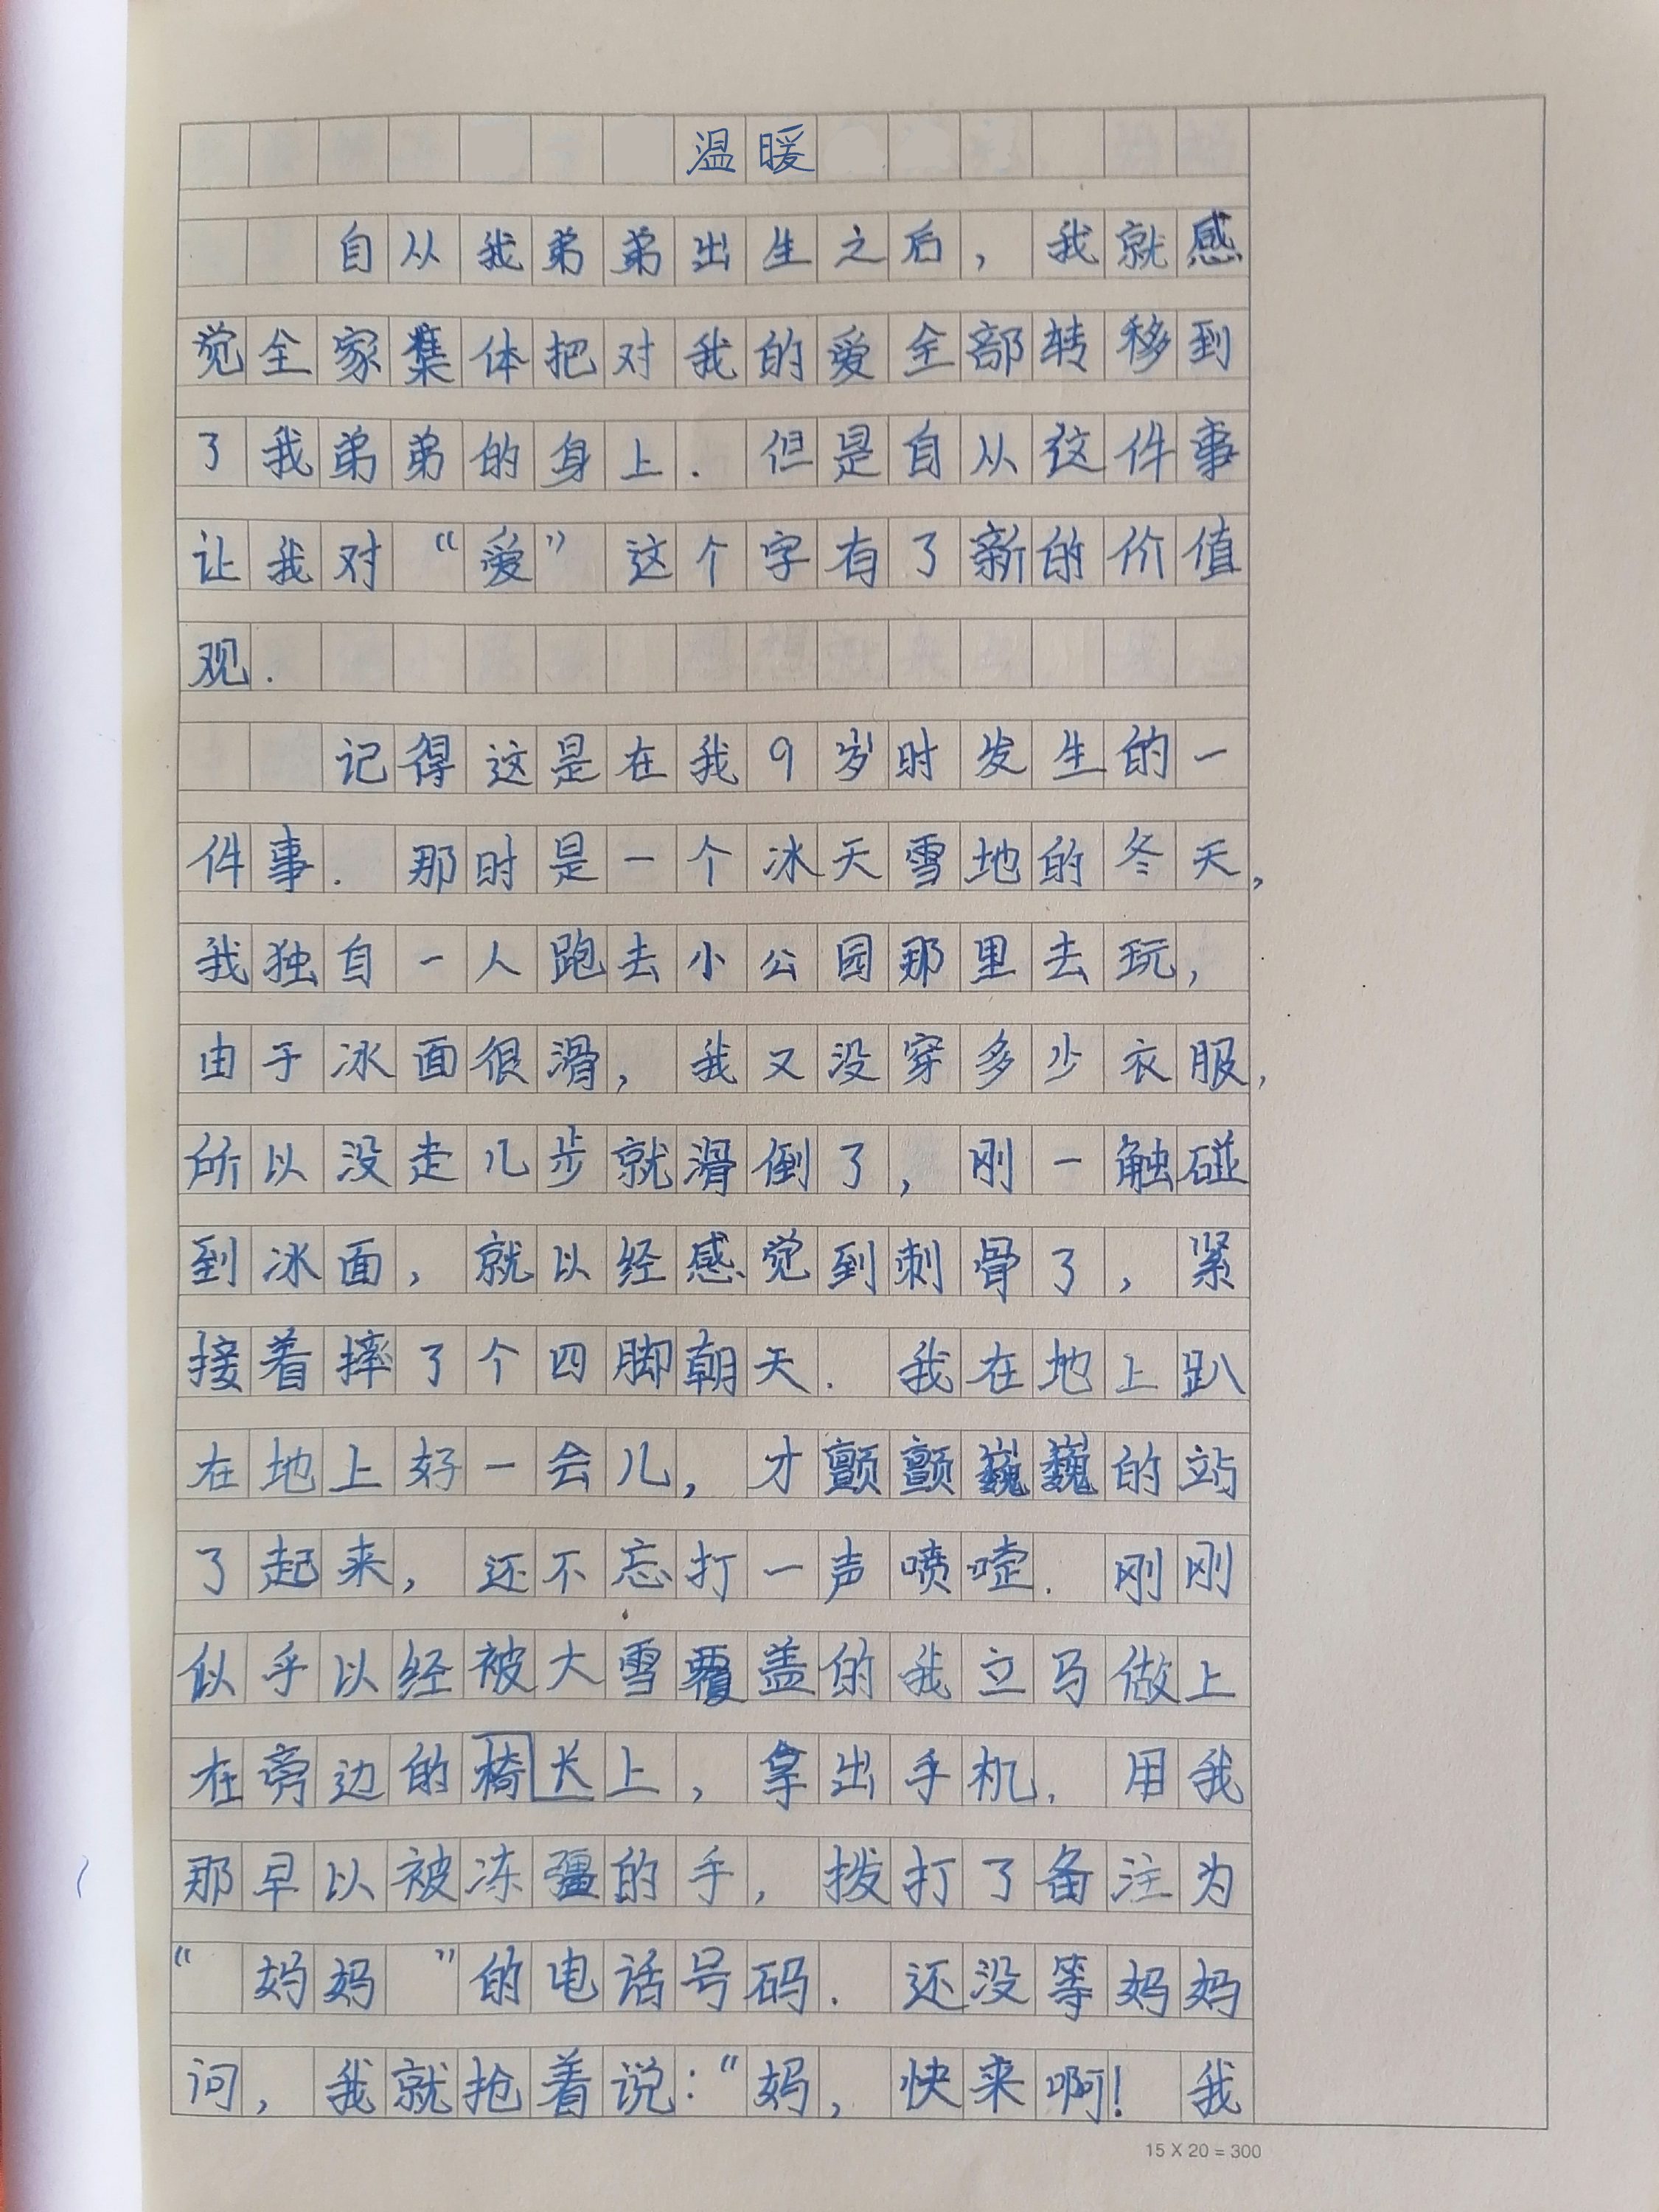 温暖
自从我弟弟出生之后，我就感
觉全家集体把对我的爱全部转移到
了我弟弟的身上.但是自从这件事
让我对“爱”这个字有了新的价值
观.
记得这是在我9岁时发生的一
件事.那时是一个冰天雪地的冬天，
我独自一人跑去小公园那里去玩，
由于冰面很滑，我又没穿多少衣服，
所以没走几步就滑倒了，刚一触碰
到冰面，就以经感觉到刺骨了，紧
接着摔了个四脚朝天.我在地上趴
在地上好一会儿，才颤颤巍巍的站
了起来，还不忘打一声喷嚏.刚刚
似乎以经被大雪覆盖的我立马做上
在旁边的椅长上，拿出手机.用我
那早以被冻疆的手，拨打了备注为
“妈妈”的电话号码.还没等妈妈
问，我就抢着说：“妈，快来啊！我
15 X 20 = 300